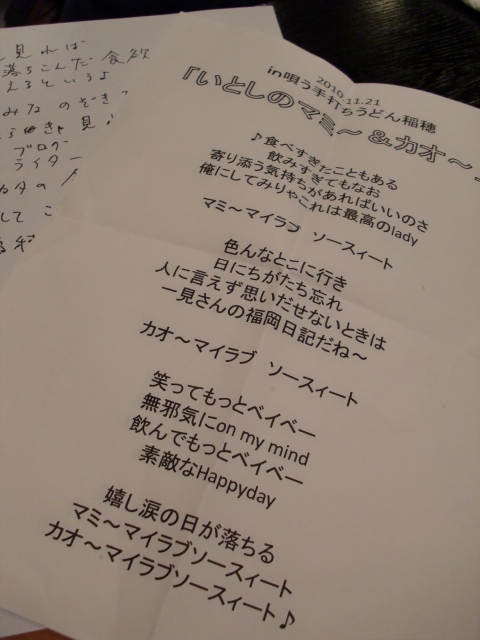 見れば
落ちこんだ 食欲
えるというよ
みなのぞき
見♪
ブログ
ライター
して こ
2010.11.21
in唄う手打ちうどん稲穂
「いとしのマミ～&カオ～
♪食べすぎたこともある
飲みすぎてもなお
寄り添う気持ちがあればいいのさ
俺にしてみりゃこれは最高のlady
マミ～マイラブ ソースィート
色んなとこに行き
日にちがたち忘れ
人に言えず思いだせないときは
一見さんの福岡日記だね～
カオ～マイラブ ソースィート
笑ってもっとベイベー
無邪気にon my mind
飲んでもっとベイベー
素敵なHappyday
嬉し涙の日が落ちる
マミ～マイラブソースィート
カオ～マイラブソースィート♪